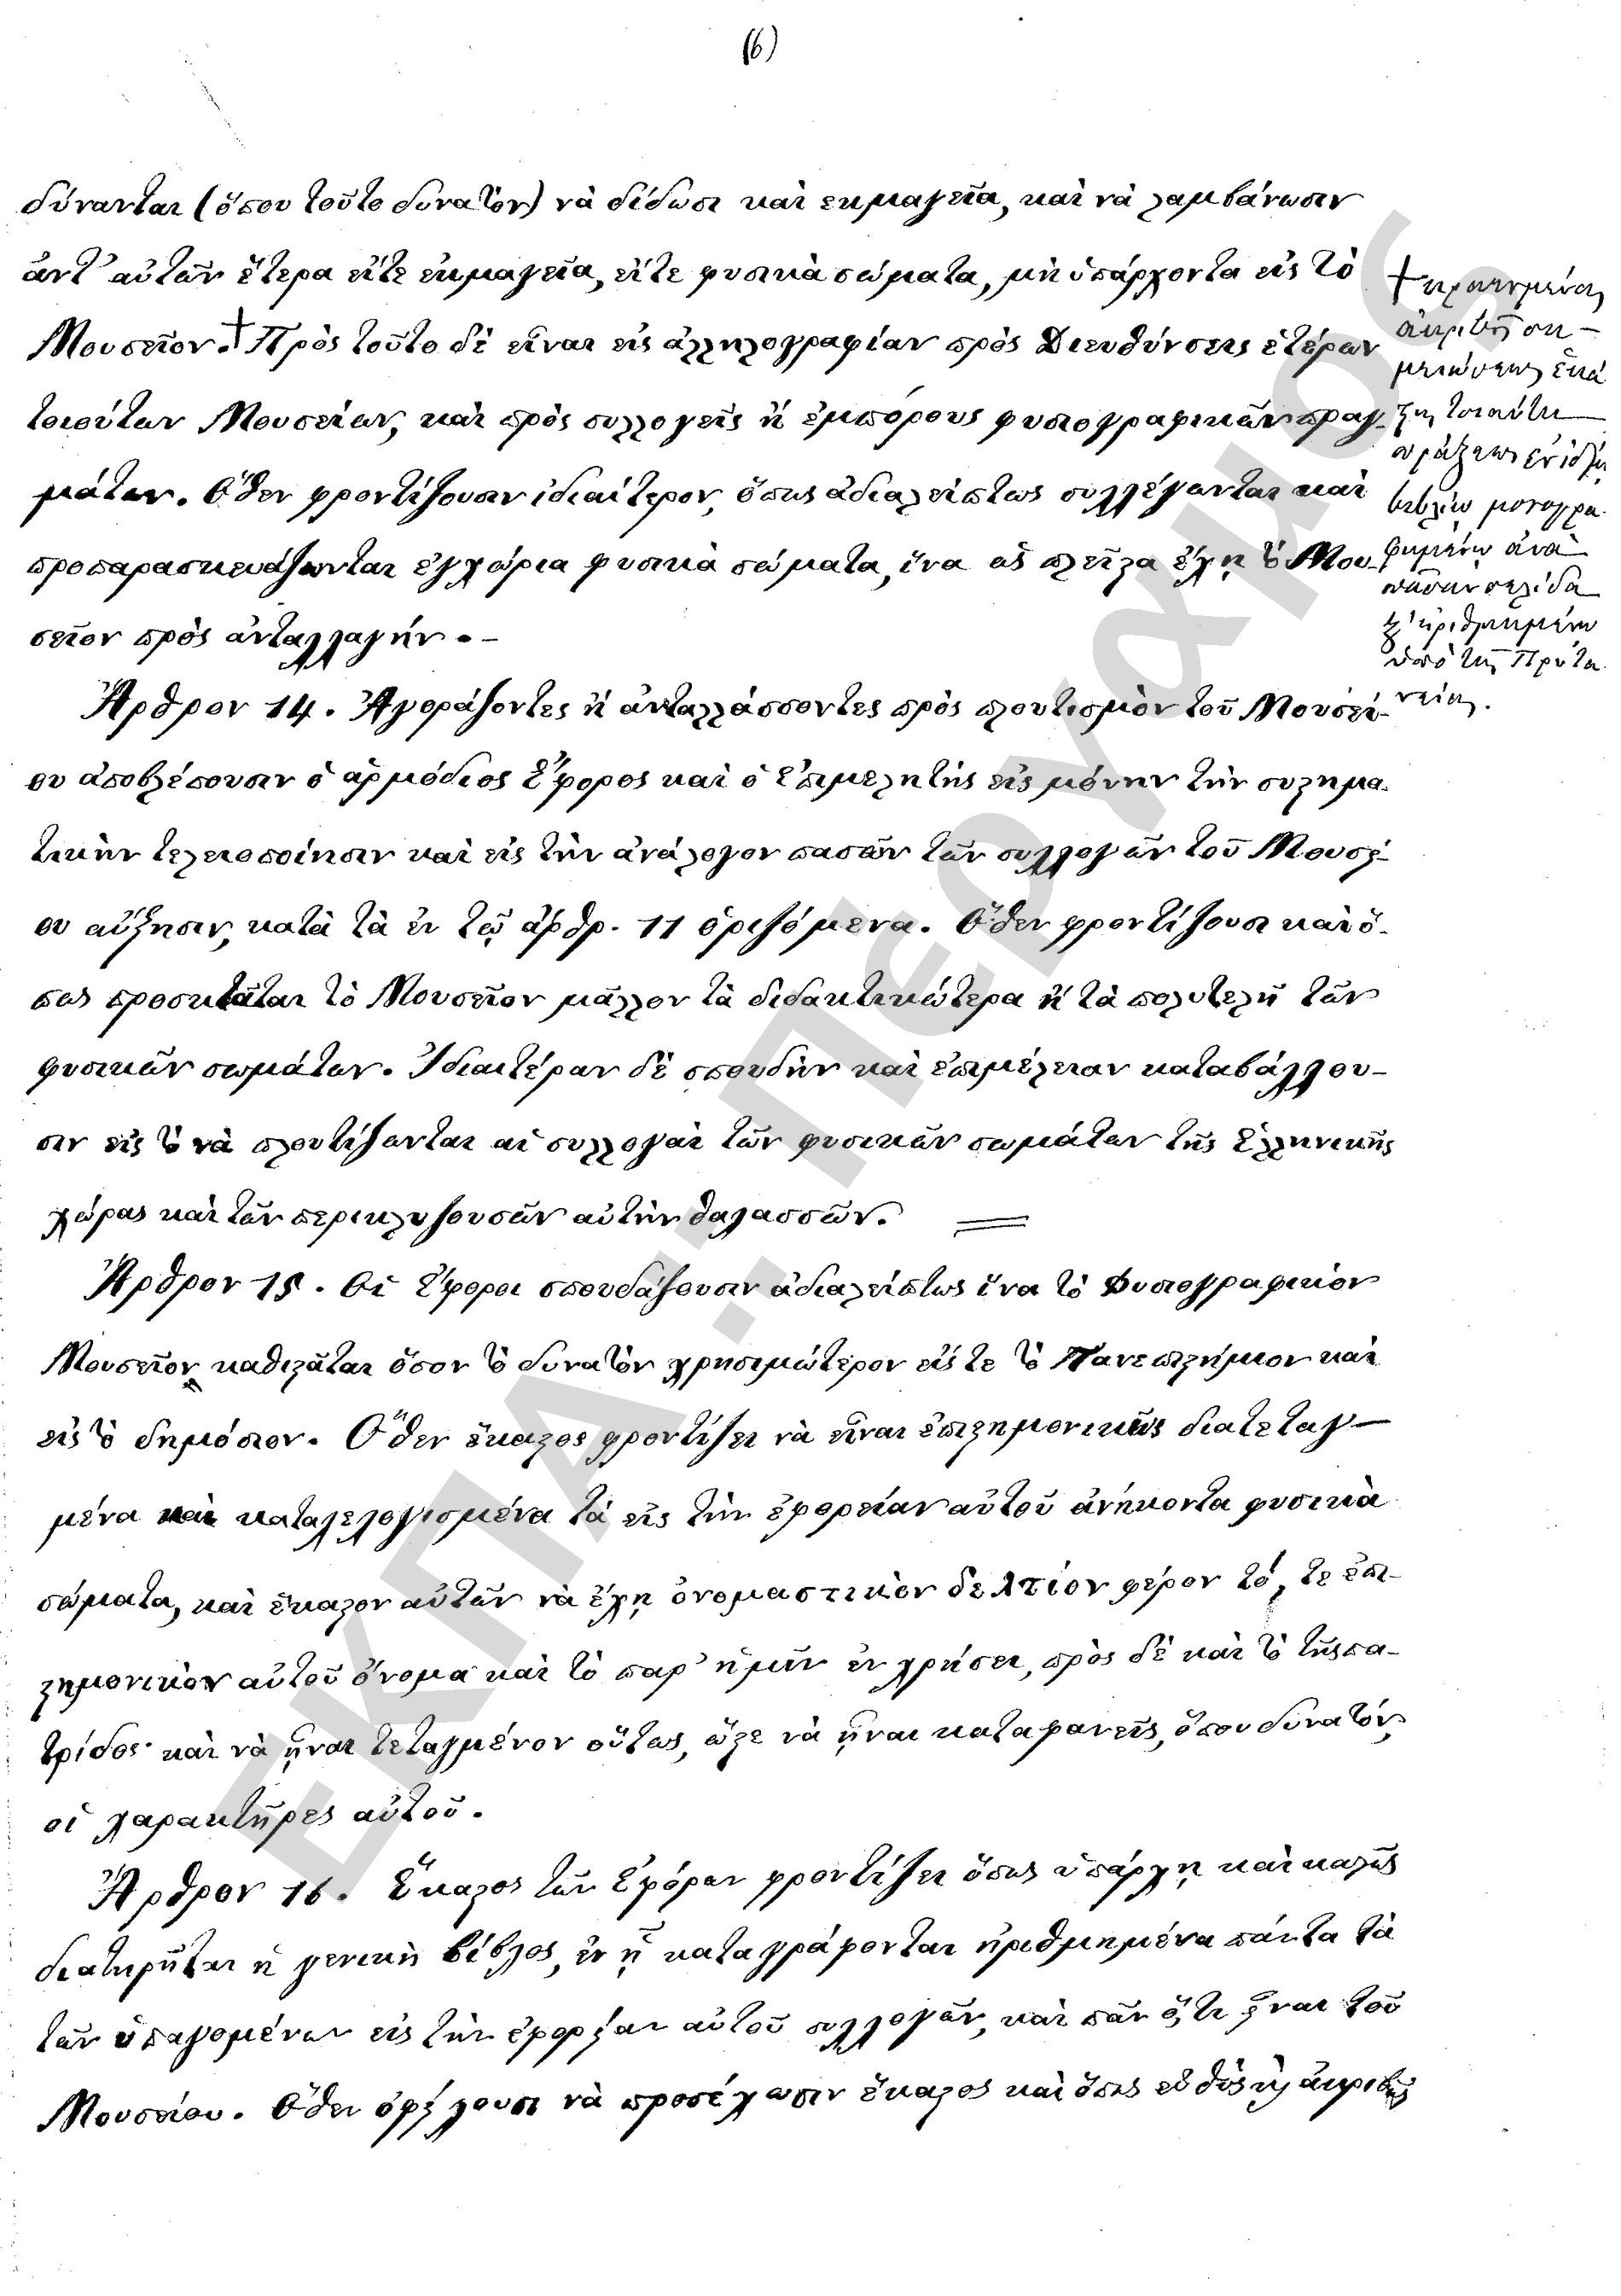 (6)
δύνανται (ὅπου τοῦτο δυνατὸν) νὰ δίδωσι καὶ εκμαγεῖα, καὶ νὰ λαμβάνωσιν
ἀντ' αὐτῶν ἕτερα εἴτε ἐκμαγεῖα, εἴτε φυσικὰ σώματα, μὴ ὑπάρχοντα εἰς τὸ
Μουσεῖον.+ Πρὸς τοῦτο δὲ εἶναι εἰς ἀλληλογραφίαν πρὸς Διευθύνσεις ἑτέρων
τοιούτων Μουσείων, καὶ πρὸς συλλογεῖς ἢ ἐμπόρους φυσιογραφικῶν πραγ-
μάτων. Ὅθεν φροντίζουσιν ἰδιαίτερον, ὅπως ἀδιαλείπτως συλλέγωνται καὶ
προπαρασκευάζωνται ἐγχώρια φυσικὰ σώματα, ἵνα ὡς πλεῖστα ἔχῃ τὸ Μου-
σεῖον πρὸς ἀνταλλαγήν. -
Ἄρθρον 14. Ἀγοράζοντες ἢ ἀνταλλάσσοντες πρὸς πλουτισμὸν τοῦ Μουσεί-
ου ἀποβλέπουσιν ὁ ἁρμόδιος Ἔφορος καὶ ὁ Ἐπιμελητὴς εἰς μόνην τὴν συστημα-
τικὴν τελειοποίησιν καὶ εἰς τὴν ἀνάλογον πασῶν τῶν συλλογῶν τοῦ Μουσεί-
ου αὔξησιν, κατὰ τὰ ἐν τῷ ἄρθρ. 11 ὁριζόμενα. Ὅθεν φροντίζουσι καὶ ὅ-
πως προσκτᾶται τὸ Μουσεῖον μᾶλλον τὰ διδακτικώτερα ἢ τὰ πολυτελῆ τῶν
φυσικῶν σωμάτων. Ἰδιαιτέραν δὲ σπουδὴν καὶ ἐπιμέλειαν καταβάλλου-
σιν εἰς τὸ νὰ πλουτίζωνται αἱ συλλογαὶ τῶν φυσικῶν σωμάτων τῆς Ἑλληνικῆς
χώρας καὶ τῶν περικλυζουσῶν αὐτὴν θαλασσῶν.
Ἄρθρον 15. Οἱ Ἔφοροι σπουδάζουσιν ἀδιαλείπτως ἵνα τὸ Φυσιογραφικὸν
Μουσεῖον καθιστᾶται ὅσον τὸ δυνατὸν χρησιμώτερον εἴς τε τὸ Πανεπιστήμιον καὶ
εἰς τὸ δημόσιον. Ὅθεν ἕκαστος φροντίζει νὰ εἶναι ἐπιστημονικῶς διατεταγ-
μένα καὶ καταλελογισμένα τὰ εἰς τὴν ἐφορείαν αὐτοῦ ἀνήκοντα φυσικὰ
σώματα, καὶ ἕκαστον αὐτῶν νὰ ἔχῃ ὀνομαστικὸν δελτίον φέρον τό, τε ἐπι-
στημονικὸν αὐτοῦ ὄνομα καὶ τὸ παρ' ἡμῖν ἐν χρήσει, πρὸς δὲ καὶ τὸ τῆς πα-
τρίδος καὶ νὰ ᾖναι τεταγμένον οὕτως, ὥστε νὰ ᾖναι καταφανεῖς, ὅπου δυνατόν,
οἱ χαρακτῆρες αὐτοῦ.
Ἄρθρον 16. Ἕκαστος τῶν Ἐφόρων φροντίζει ὅπως ὑπάρχῃ καὶ καλῶς
διατηρῆται ἡ γενικὴ βίβλος, ἐν ᾗ καταγράφονται ἠριθμημένα πάντα τὰ
τῶν ὑπαγομένων εἰς τὴν ἐφορείαν αὐτοῦ συλλογῶν, καὶ πᾶν ὅ,τι εἶναι τοῦ
Μουσείου. Ὅθεν ὀφείλουσι νὰ προσέχωσιν ἕκαστος καὶ ὅπως εὐθὺς καὶ ἀκριβῶς
+ κρατουμένης
ἀκριβοῦς ση-
μειώσεως ἑκά
στης τοιαύτης
πράξεως ἐν ἰδίῳ
βιβλίῳ μονογρα-
φημένῳ ἀνὰ
πᾶσαν σελίδα
καὶ ἠριθμημένῳ
ὑπὸ τῆς Πρυτα-
νείας.
ΕΚΠΑ